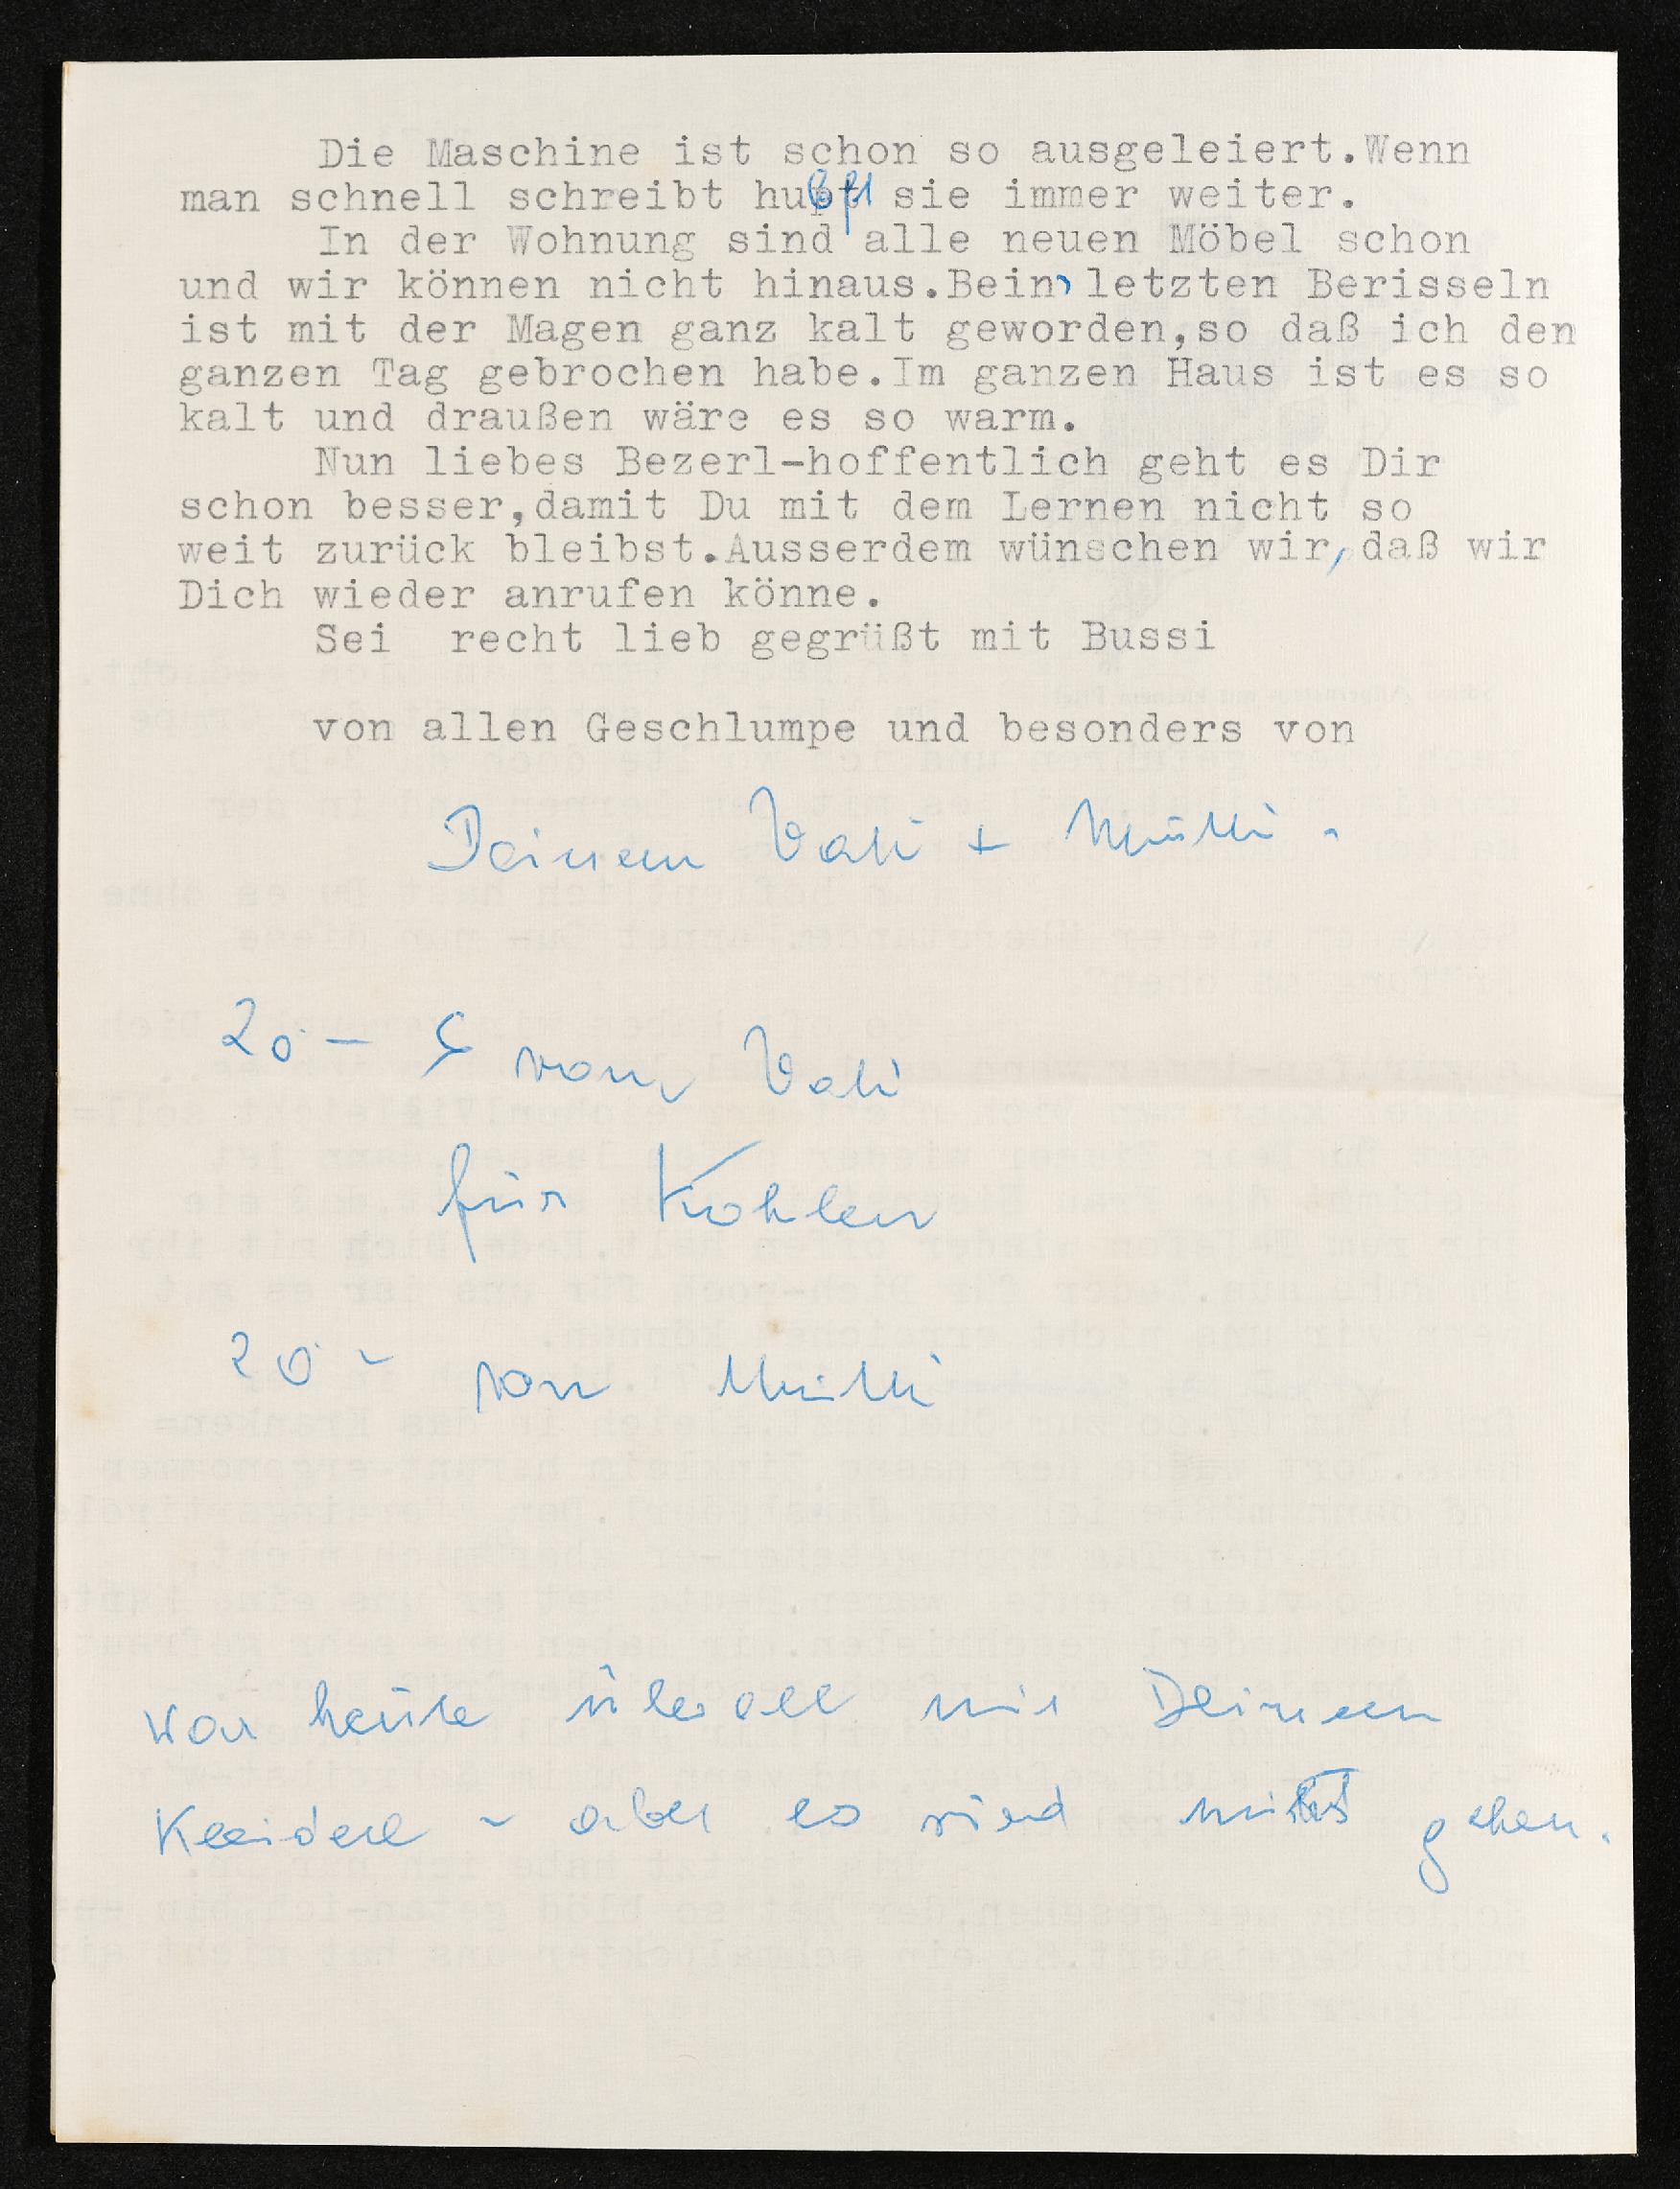 Die Maschine ist schon so ausgeleiert.Wenn
man schnell schreibt hupft sie immer weiter.
In der Wohnung sind alle neuen Möbel schon
und wir können nicht hinaus.Beim letzten Berisseln
ist mit der Magen ganz kalt geworden,so daß ich den
ganzen Tag gebrochen habe.Im ganzen Haus ist es so
kalt und draußen wäre es so warm.
Nun liebes Bezerl-hoffentlich geht es Dir
schon besser,damit Du mit dem Lernen nicht so
weit zurück bleibst.Ausserdem wünschen wir, daß wir
Dich wieder anrufen könne.
Sei recht lieb gegrüßt mit Bussi
von allen Geschlumpe und besonders von
Deinem Vati + Mutti.
20.- S vom Vati
für Kohlen
20.- von Mutti
War heute überall mit Deinem
Kleiderl - aber es wird nicht gehen.